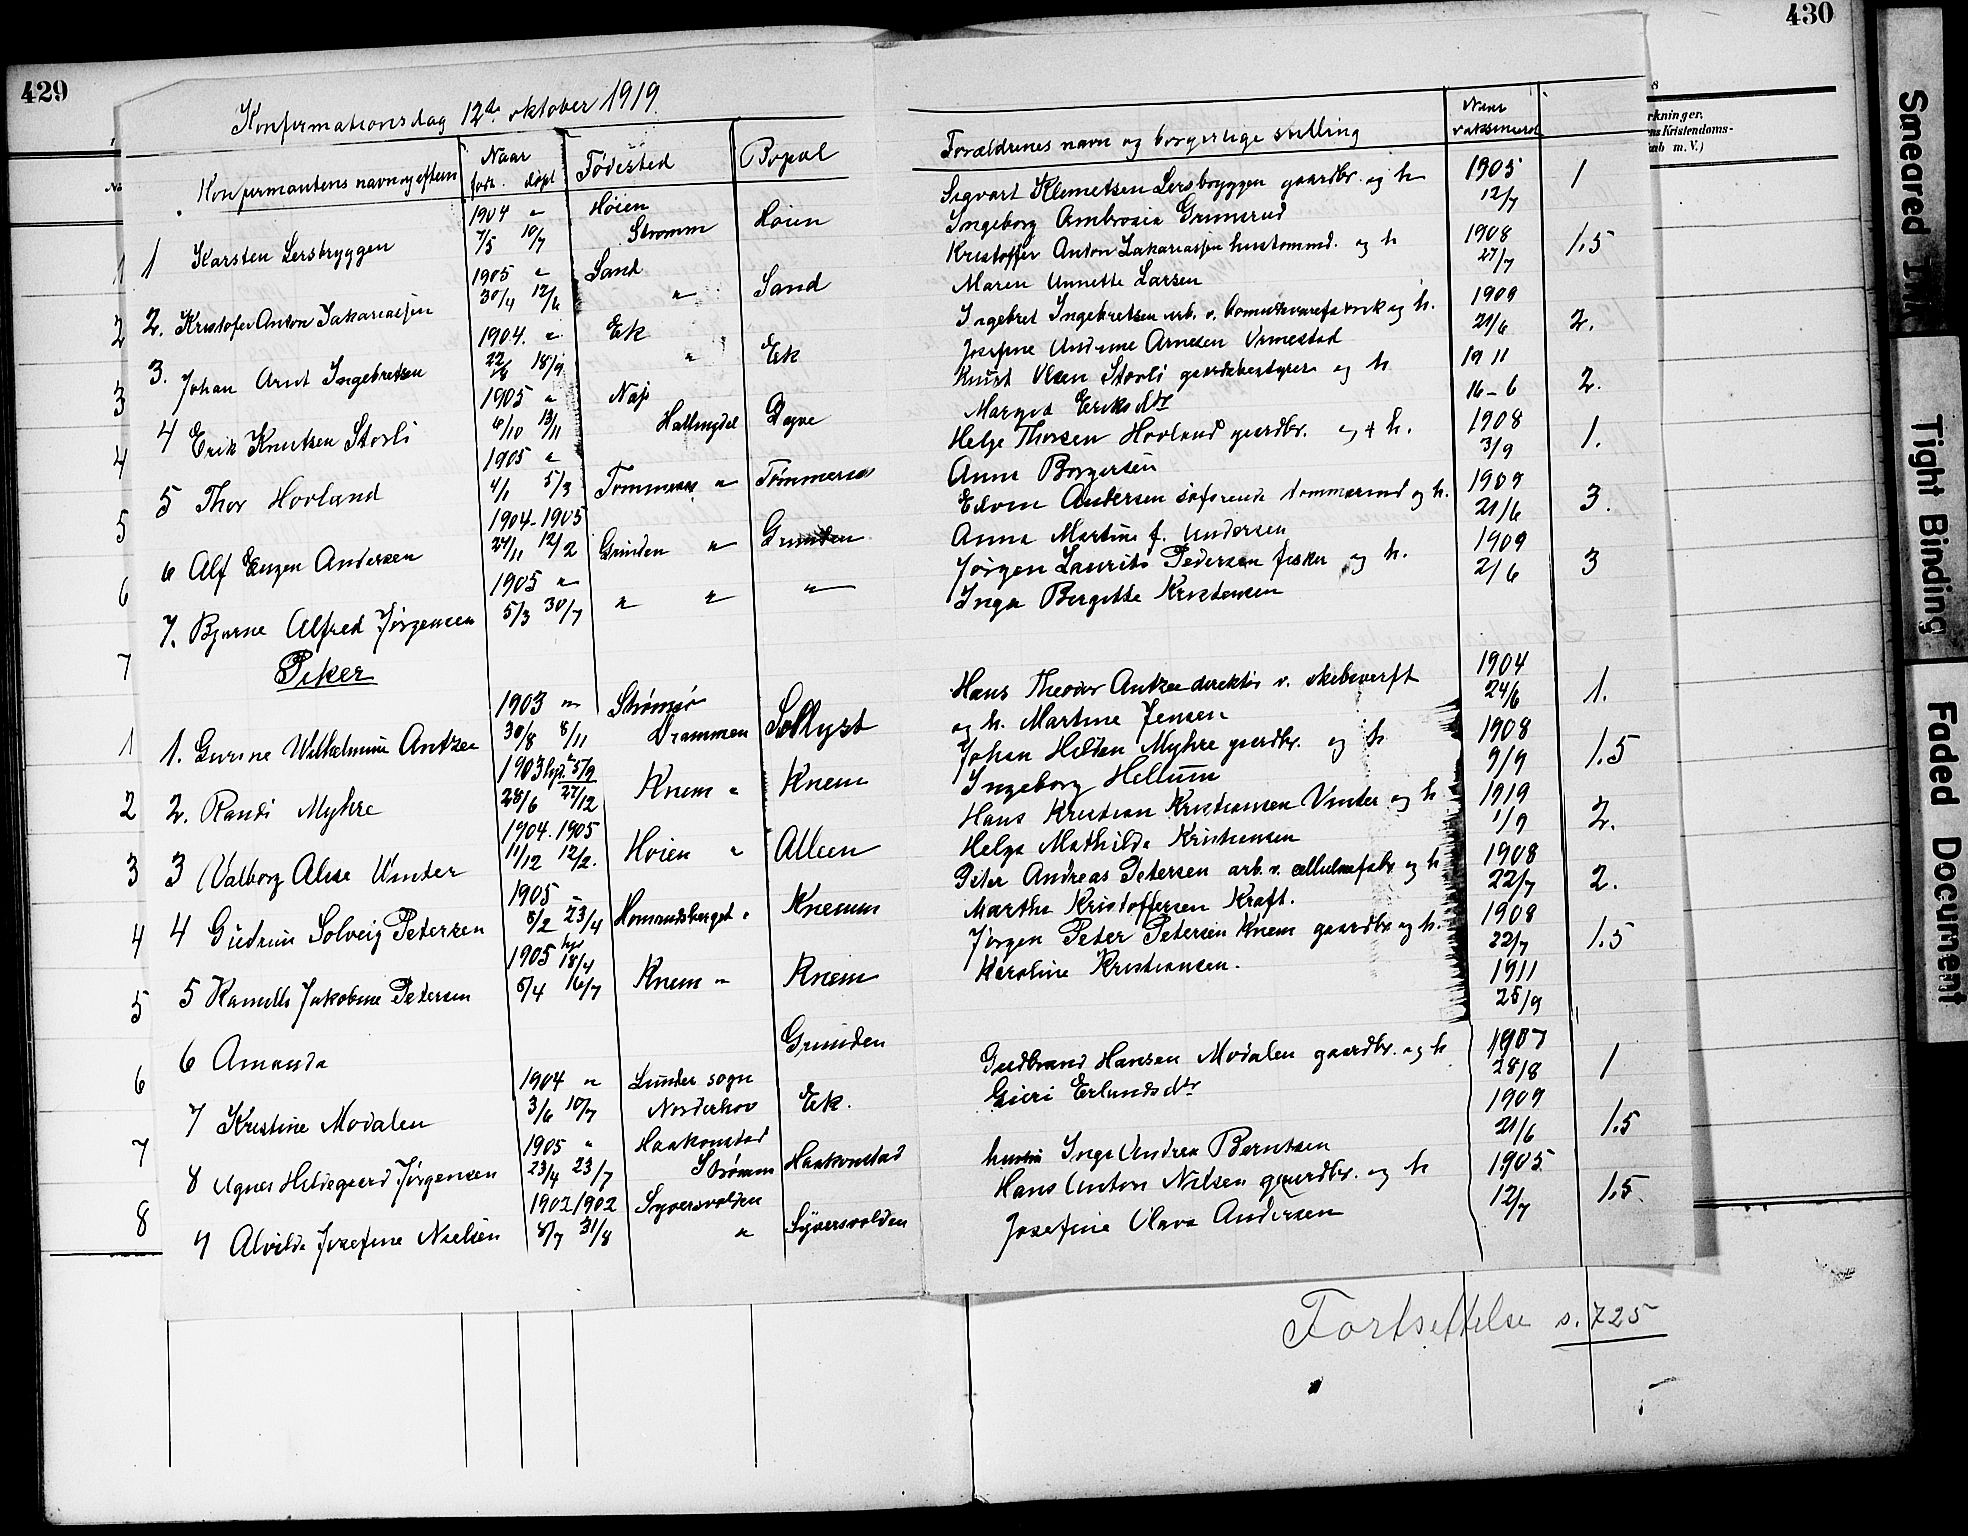 429
430
Konfirmationsdag 12te oktober 1919.
Konfirmantens navn og eftern
Naar
født. døpt
Fødested
Bopæl
Forældrenes navn og borgerlige stilling
Naar
vaksinerd
rkninger.
ns Kristendoms-
ab m. V.)
1 1 Karsten Lersbryggen
1904 "
7/5 10/7
Høien
Strømm
Høien
Sigvart Klemetsen Lersbryggen gaardbr. og h
Ingeborg Ambrosia Grimsrud
1905
12/7
1
2 2. Kristofer Anton Sakariassen
1905 "
30/4 12/6
Sand
"
Sand
Kristoffer Anton Sakariassen hustomnd. og h
Maren Annette Larsen
1908
27/7
1.5
3 3. Johan Arnt Ingebretsen
1904. "
22/8 18/9
Ek
"
Ek
Ingebret Ingebretsen arb. v. og h.
Josefine Andrine Arnesen Ormestad
1909
21/6
2.
4 4 Erik Knutsen Storli
1905 "
6/10 13/11
Næs
Hallingdal
Døvve
Knut Olsen Storli gaardsbestyrer og h
Margid Eriksdtr
1911
16-6
2.
5 5 Thor Hovland
1905 "
4/1 5/3
Tømmeraas "
Tømmeraas
Helge Thorsen Hovland gaardbr. og h.
Anne Borgersen
1908
3/9
1.
6 6 Alf Eugen Andersen
1904-1905
27/11 12/2
Grunden "
Grunden
Edvin Andersen søfarende tømmermd og h.
Anna Martine f. Andersen
1909
21/6
3.
7 7. Bjarne Alfred Jørgensen
1905 "
5/3 30/7
" "
"
Jørgen Laurits Pedersen fisker og h.
Inga Bergitte Kristensen
1909
2/6
3
Piker
1 1. Gurine Wilhelmine Antzee
1903 "
30/8 8/11
Strømsø
Drammen
Sollyst
Hans Theodor Antzee direktør v. skibsverft
og h. Martine Jensen
1904
24/6
1.
2 2. Randi Myhre
1903 hjd. 5/9
28/6 27/12
Knem "
Knem
Johan Hilden Myhre gaardbr. og h
Ingeborg Hellum
1908
9/9
1.5
3 3 Valborg Alise Vinter
1904. 1905
11/12 12/2.
Høien "
Alleen
Hans Kristian Kristiansen Vinter og h
Helga Mathilda Kristiansen
1919
1/9
2.
4 4 Gudrun Solveig Petersen
1905 "
8/2 23/4
Homandsberget "
Knemm
Peter Andreas Petersen arb. v. cellulosefabr og h
Martha Kristoffersen Kraft.
1908
22/7
2.
5 5 Kamilla Jakobine Petersen
1905 hjd 18/4
5/4 16/7
Knem "
Knem
Jørgen Peter Petersen Knem gaardbr og h.
Karoline Kristiansen.
1908
22/7
1.5
6 6 Amanda
Grunden
1911
25/9
7 7 Kristine Modalen
1904 "
3/6 10/7
Lunder sogn
Norderhov
Ek.
Gudbrand Hansen Modalen gaardbr. og h
Guri Erlandsdtr
1907
28/8
1
8 8 Agnes Hildegard Jørgensen
1905 "
23/4 23/7
Haakonstad
Strømm
Haakonstad
hustru Inga Andrea Berntsen
1909
21/6
1.5
9 Alvilde Josefine Nielsen
1902 1902
8/7 31/8
Syversvolden
"
Syversvolden
Hans Anton Nilsen gaardbr. og h
Josefine Olava Andersen
1905
12/7
1.5
Fortsettelse s. 725
Smeared Ink
Tight Binding
Faded Document